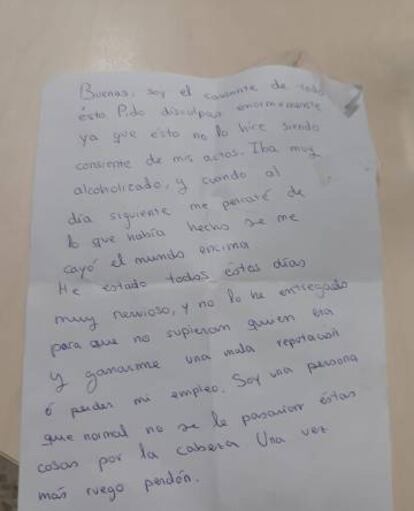 Buenas, soy el causante de todo
ésto. Pido disculpas enormemente
ya que ésto no lo hice siendo
consiente de mis actos. Iba muy
alcoholizado, y cuando al
día siguiente me percaté de
lo que había hecho se me
cayó el mundo encima
He estado todos éstos días
muy nervioso, y no lo he entregado
para que no supieran quien era
y ganarme una mala reputación
ó perder mi empleo. Soy una persona
que normal no se le pasarían éstas
cosas por la cabeza Una vez
más ruego perdón.